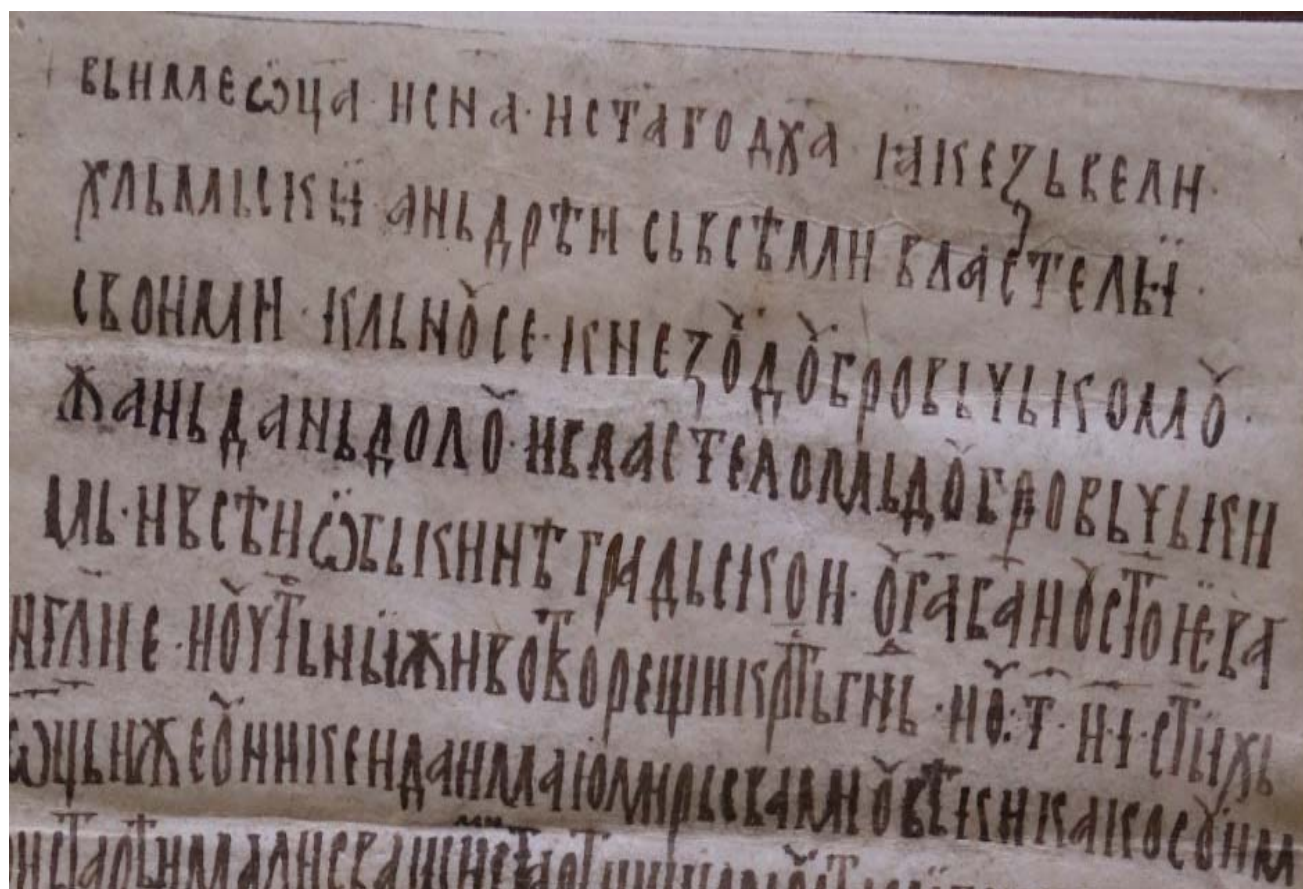 вьиме ѡ҃ца · и сн҃а · и ст҃аго дх҃а ꙗ кнезь вели
хльмьски аньдрѣи сь всѣми властелы
своими · кльнꙋ се · кнезꙋ дꙋбровьчькомꙋ ·
жань даньдолꙋ · и властеломь дꙋбровьчьки
мь · и всѣи ѡбькинѣ градьскои · ꙋ г҃а б҃а и ꙋ ст҃ое ꙗ҃ва
нг҃лие · и ꙋ чт҃ьни животворещи крт҃ь г҃нь · и ꙋ · т҃ · и · і҃ · ст҃ихь
ѡц҃ь иже ꙋ никеи да имаю мирь с вами ꙋ вѣки како сꙋ им